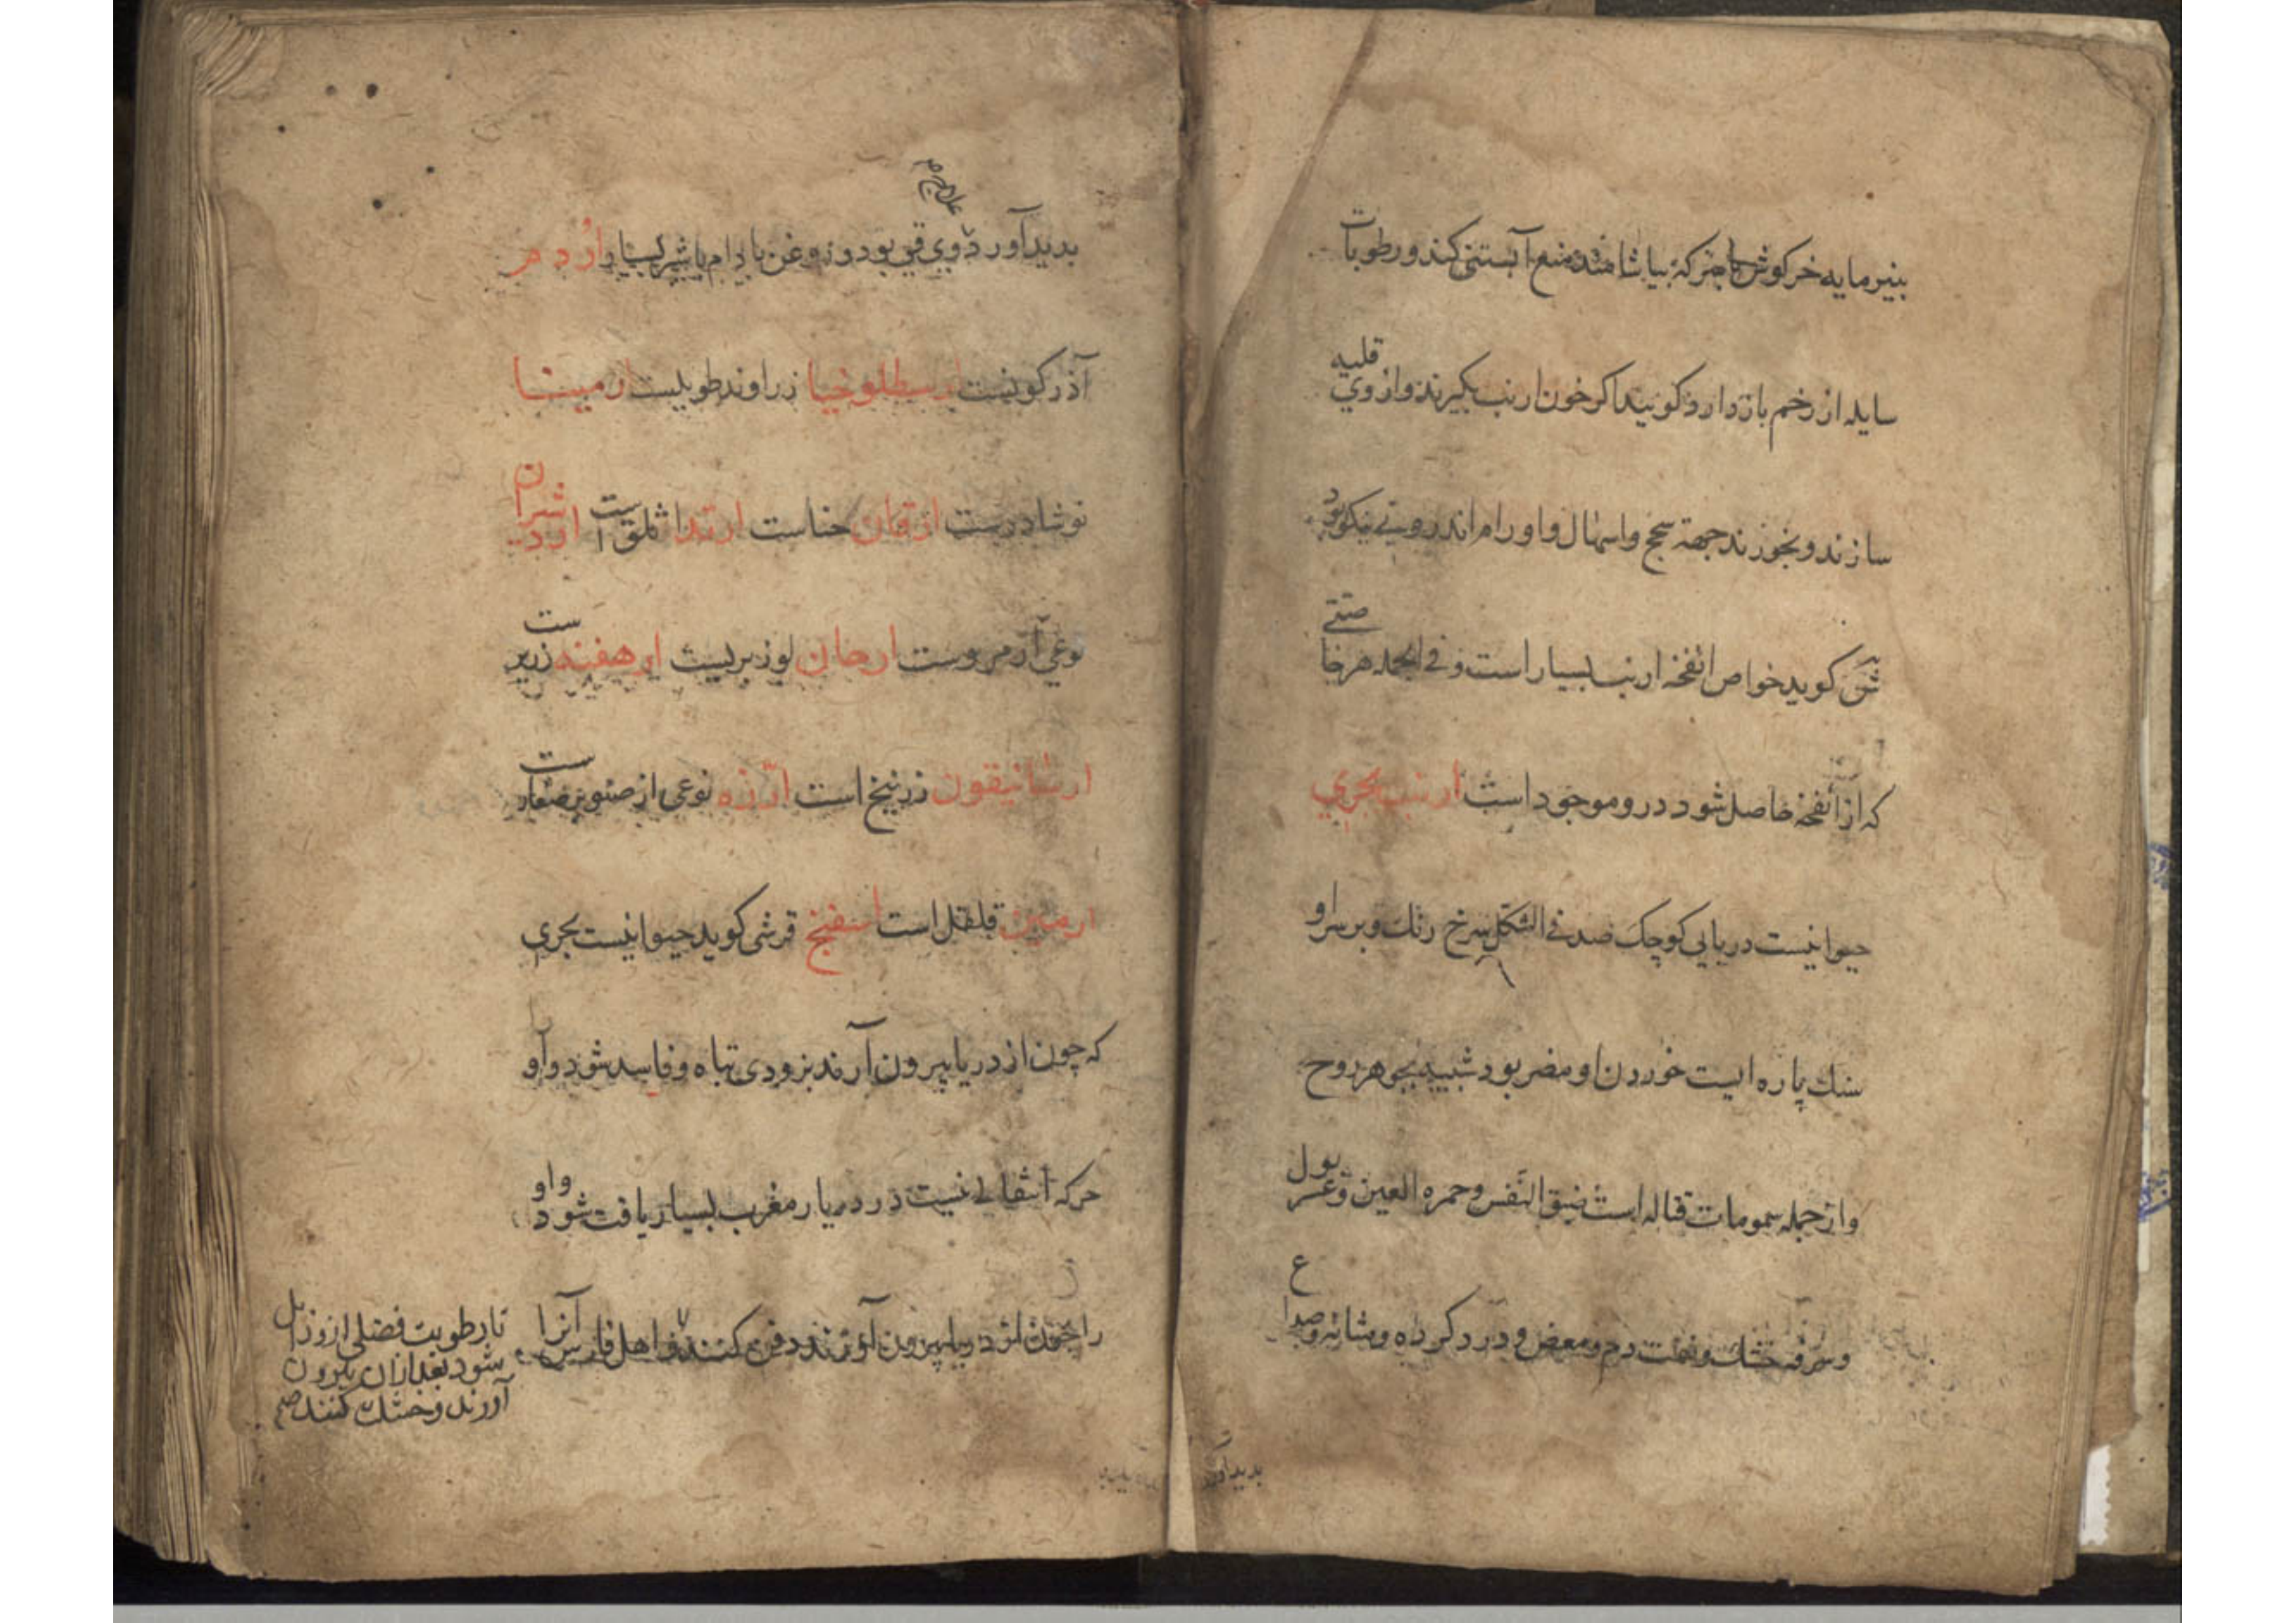 بنیرمایه خرکوش با سرکه بیاشامند منع آبستنی کند و رطوبات
سایله از رخم بازدارد کویند اکر خون ارنب بکیرند و از وی قلیه
سازند و بخورند جهة سحج و اسهال و اورام اندرونی نیکو بود
کوید خواص انفخه ارنب بسیار است و فی الجمله هر خاصیتی
که از انفخه حاصل شود در و موجود است ارنب بحری
حیوانیست دریایی کوچک صدفی الشکل سرخ رنك و بر سر او
سنك پاره ایست خوردن او مضر بود شبیه بجوهر روح
و از جمله سمومات قتاله است ضیق النفس و حمره العین و عسر بول
و سرفه خشك و نفث دم و مغص و درد کرده و مثانه و صداع
بدید آورد
بدید آورد و وی قی بود و روغن بادام با شیر بسیار ارد م ر
آذرکونست ارسطلوخیا زراوند طویلست ارمینا
نوشادرست ارقان حناست ارتد اثلق است اردشیران
نوعی از مروست ارجان لوز بریست ارهفند زریر ست
ارسانیقون زرنیخ است ارزه نوعی از صنوبر صغار ست
ارمین قلقل است اسفنج قرشی کوید حیوانیست بحری
که چون از دریا بیرون آرند بزودی تباه و فاسد شود و او
حرکه انتقالی نیست در دیار مغرب بسیار یافت شود و او
را چون از دریا بیرون آورند دفن کنند و اهل فارس آنرا
تا رطوبت فضلی از و زایل
شود بعد ازان بیرون
آورند و خشك کنند صح